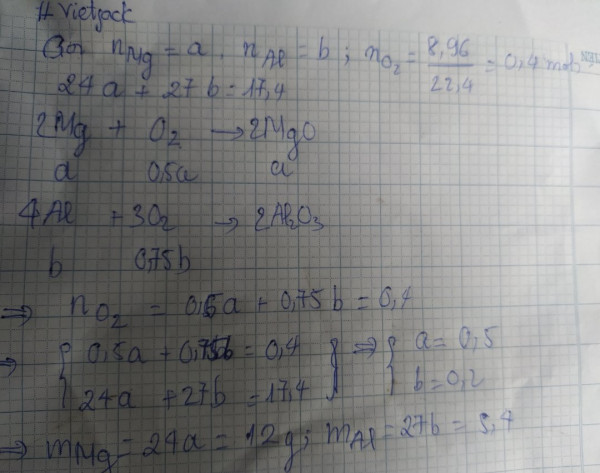 # Vietjack
Gọi nMg = a . nAl = b ; nO₂ = 8,96/22,4 = 0,4 mol
24a + 27b = 17,4
2Mg + O₂ → 2MgO
a 0,5a a
4Al + 3O₂ → 2Al₂O₃
b 0,75b
=> nO₂ = 0,5a + 0,75b = 0,4
=> { 0,5a + 0,75b = 0,4 } => { a = 0,5
{ 24a + 27b = 17,4 } { b = 0,2
=> mMg = 24a = 12g ; mAl = 27b = 5,4